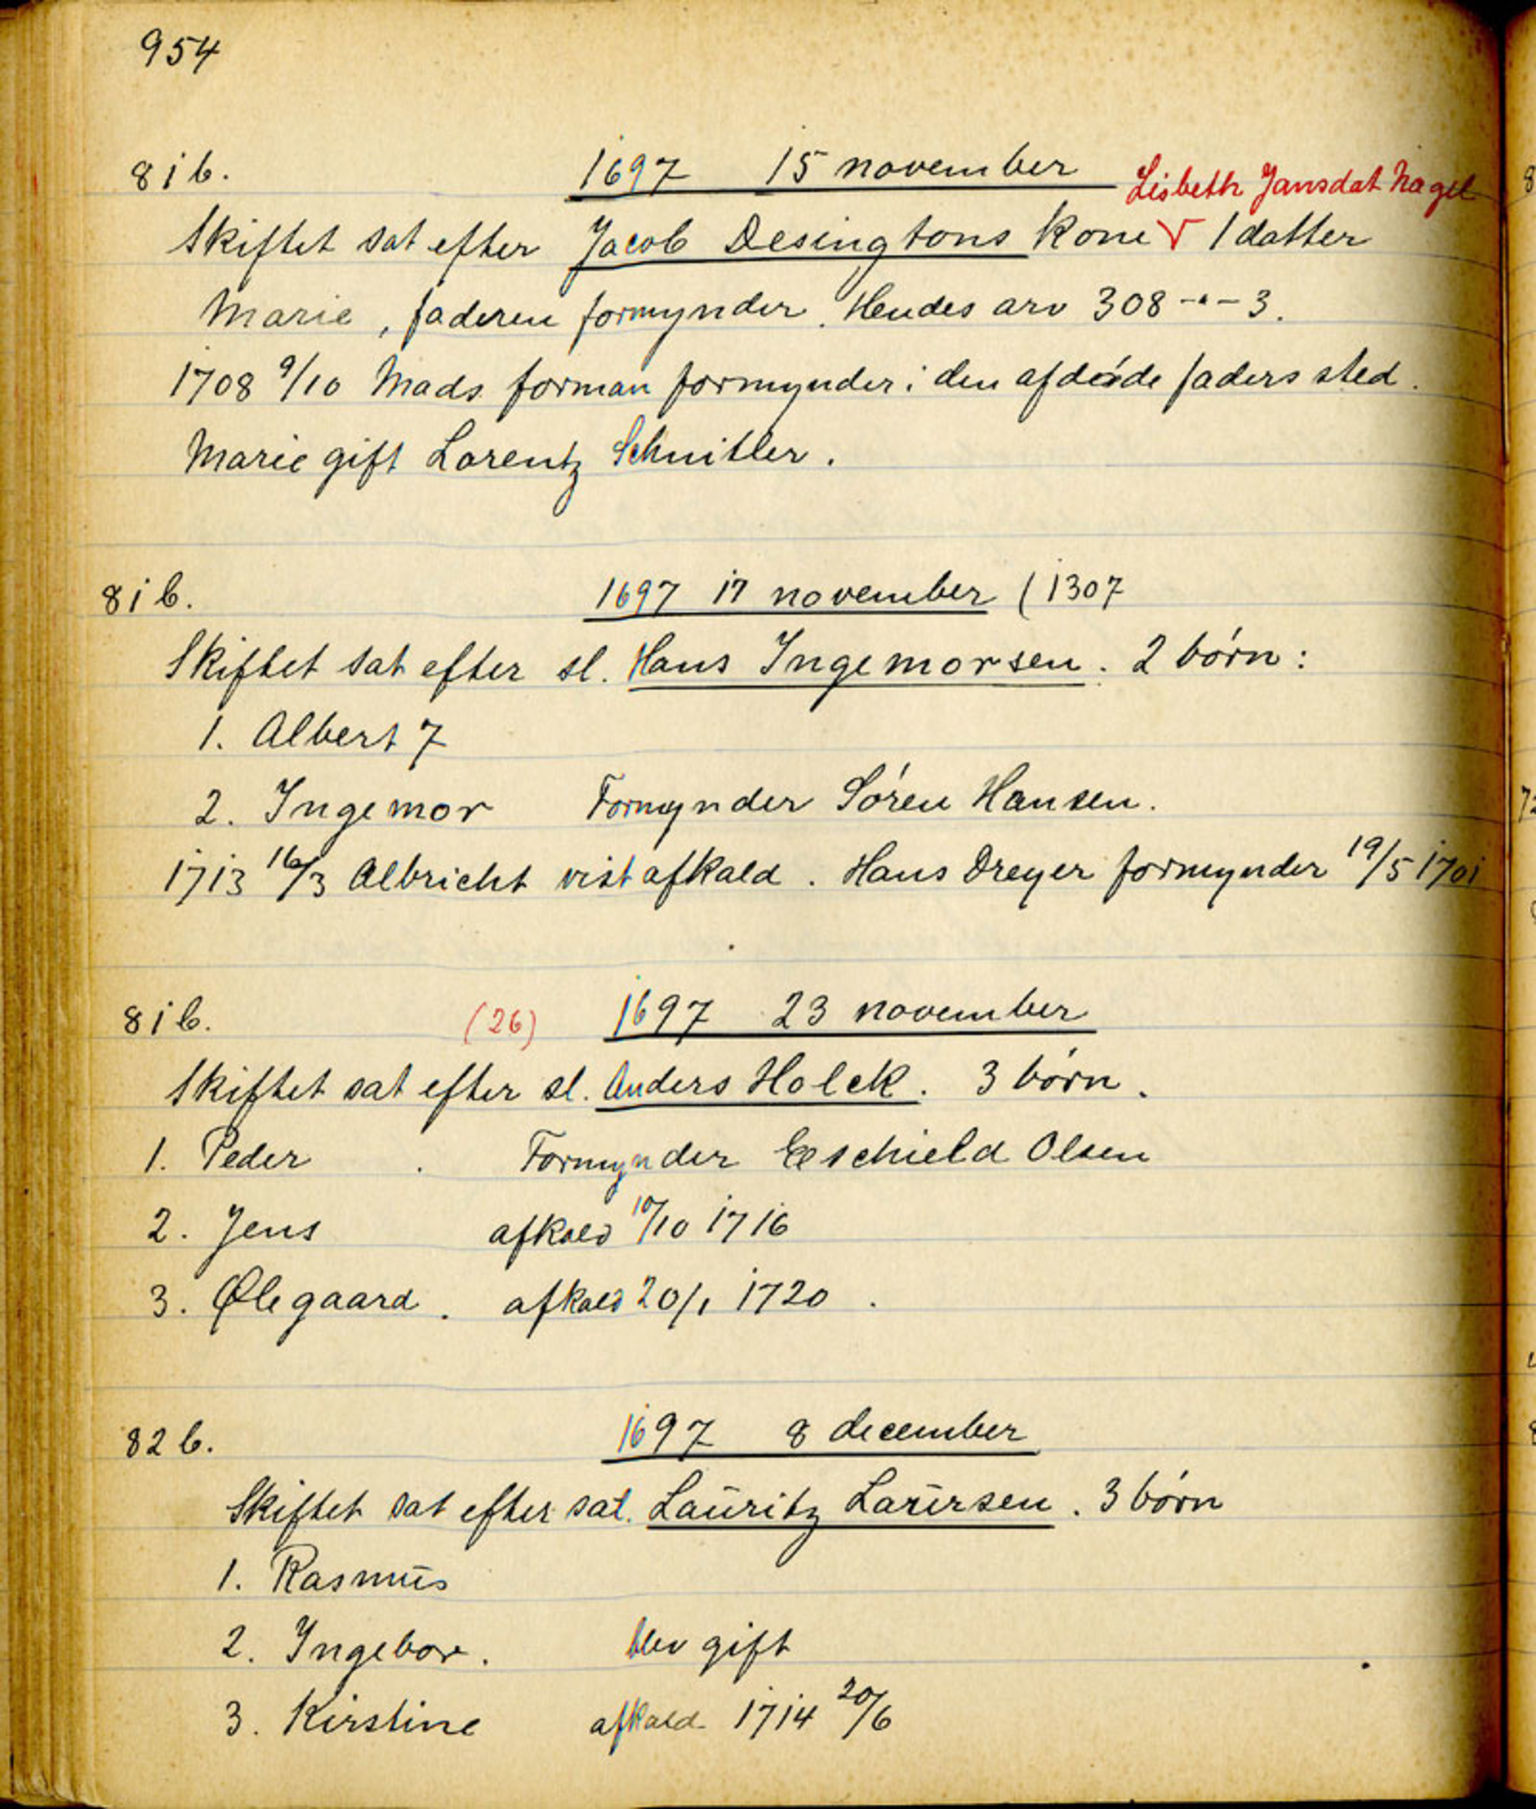 954
81b. 1697 15 november Lisbeth Jansdat Nagel
Skiftet sat efter Jacob Desingtons kone √ 1 datter
Marie, faderen formynder. Hendes arv 308 - " - 3.
1708 9/10 Mads forman formynder i den afdøde faders sted.
Marie gift Lorentz Schnitler.
81b. 1697 17 november (1307
Skiftet sat efter sl. Hans Ingemorsen. 2 børn:
1. Albert 7
2. Ingemor Formynder Søren Hansen.
1713 16/3 Albricht vist afkald. Hans Dreyer formynder 19/5 1701
81b. (26) 1697 23 november
Skiftet sat efter sl. Anders Holck. 3 børn.
1. Peder Formynder Eschield Olsen
2. Jens afkald 10/10 1716
3. Ølegaard. afkald 20/1 1720.
82b. 1697 8 december
Skiftet sat efter sal. Lauritz Laursen. 3 børn
1. Rasmus
2. Ingebor. blev gift
3. Kirstine afkald 1714 20/6